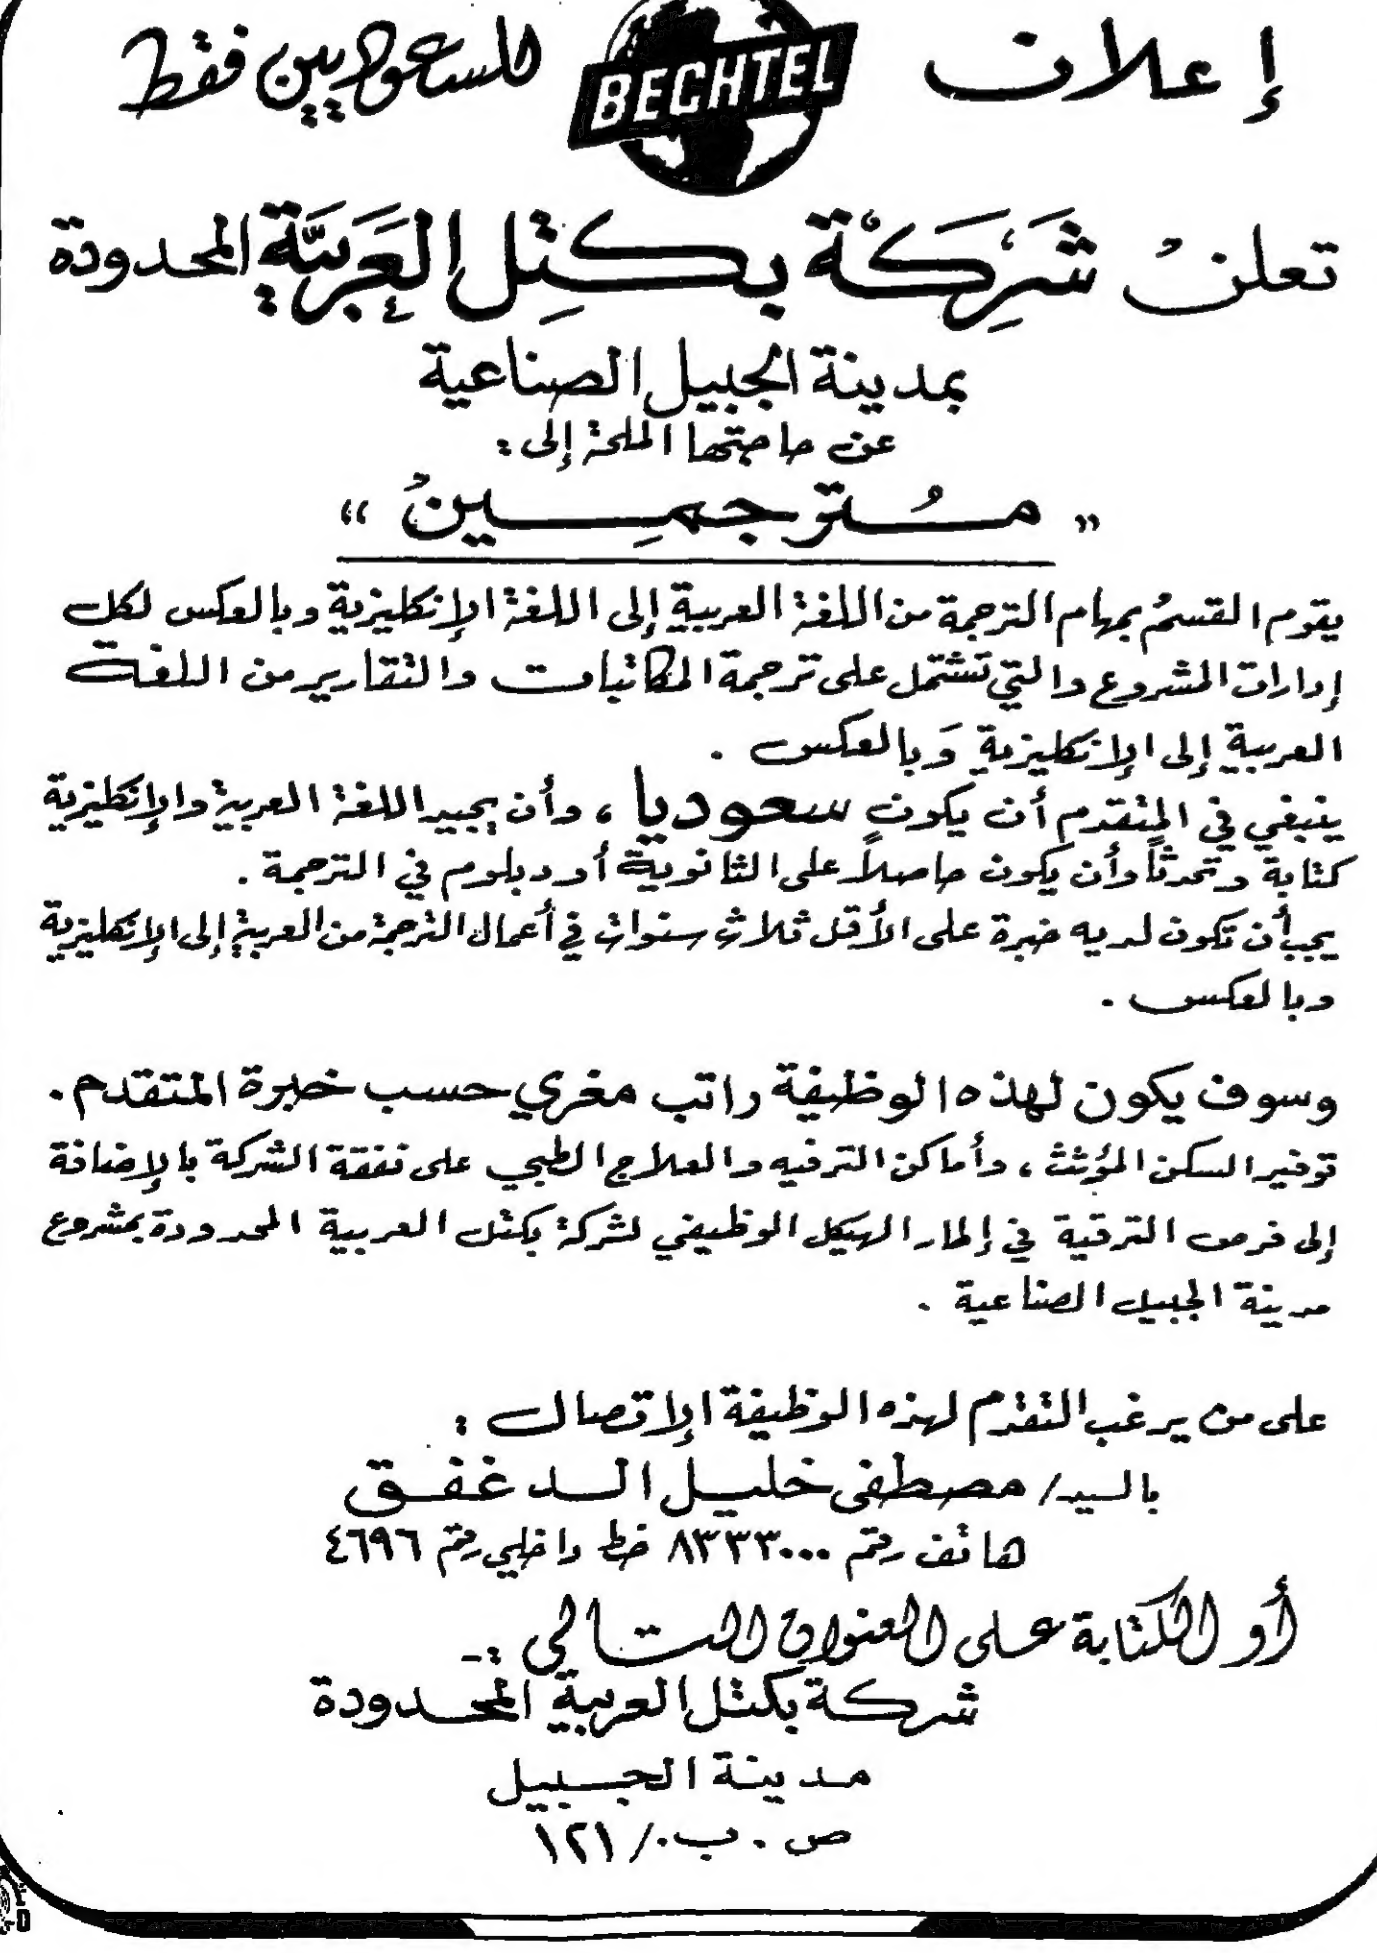 إعلان
BECHTEL
للسعوديين فقط
تعلنُ شَرِكَة بكتِل العَرَبيَّة المحدودة
بمدينة الجبيل الصناعية
عن حاجتها الملحة إلى :
" مُترجمِينُ "
يقوم القسمُ بمهام الترجمة من اللغة العربية إلى اللغة الإنكليزية وبالعكس لكل
إدارات المشروع والتي تشتمل على ترجمة المكاتبات والتقارير من اللغة
العربية إلى الإنكليزية وَبالعكس .
ينبغي في المتقدم أن يكون سعوديا ، وأن يجيد اللغة العربية والإنكليزية
كتابة وتحدثاً وأن يكون حاصلاً على الثانوية أو دبلوم في الترجمة .
يجب أن تكون لديه خبرة على الأقل ثلاث سنوات في أعمال الترجمة من العربية إلى الإنكليزية
وبالعكس .
وسوف يكون لهذه الوظيفة راتب مغري حسب خبرة المتقدم .
توفير السكن المؤثث ، وأماكن الترفيه والعلاج الطبي على نفقة الشركة بالإضافة
إلى فرص الترقية في إطار الهيكل الوظيفي لشركة بكتل العربية المحدودة بمشروع
مدينة الجبيل الصناعية .
على من يرغب التقدم لهذه الوظيفة الإتصال :
بالسيد / مصطفى خليل الدغفق
هاتف رقم ٨٣٣٣٠٠٠ خط داخلي رقم ٤٦٩٦
أو الكتابة على العنوان التالي :-
شركة بكتل العربية المحدودة
مدينة الجبيل
ص . ب . / ١٢١